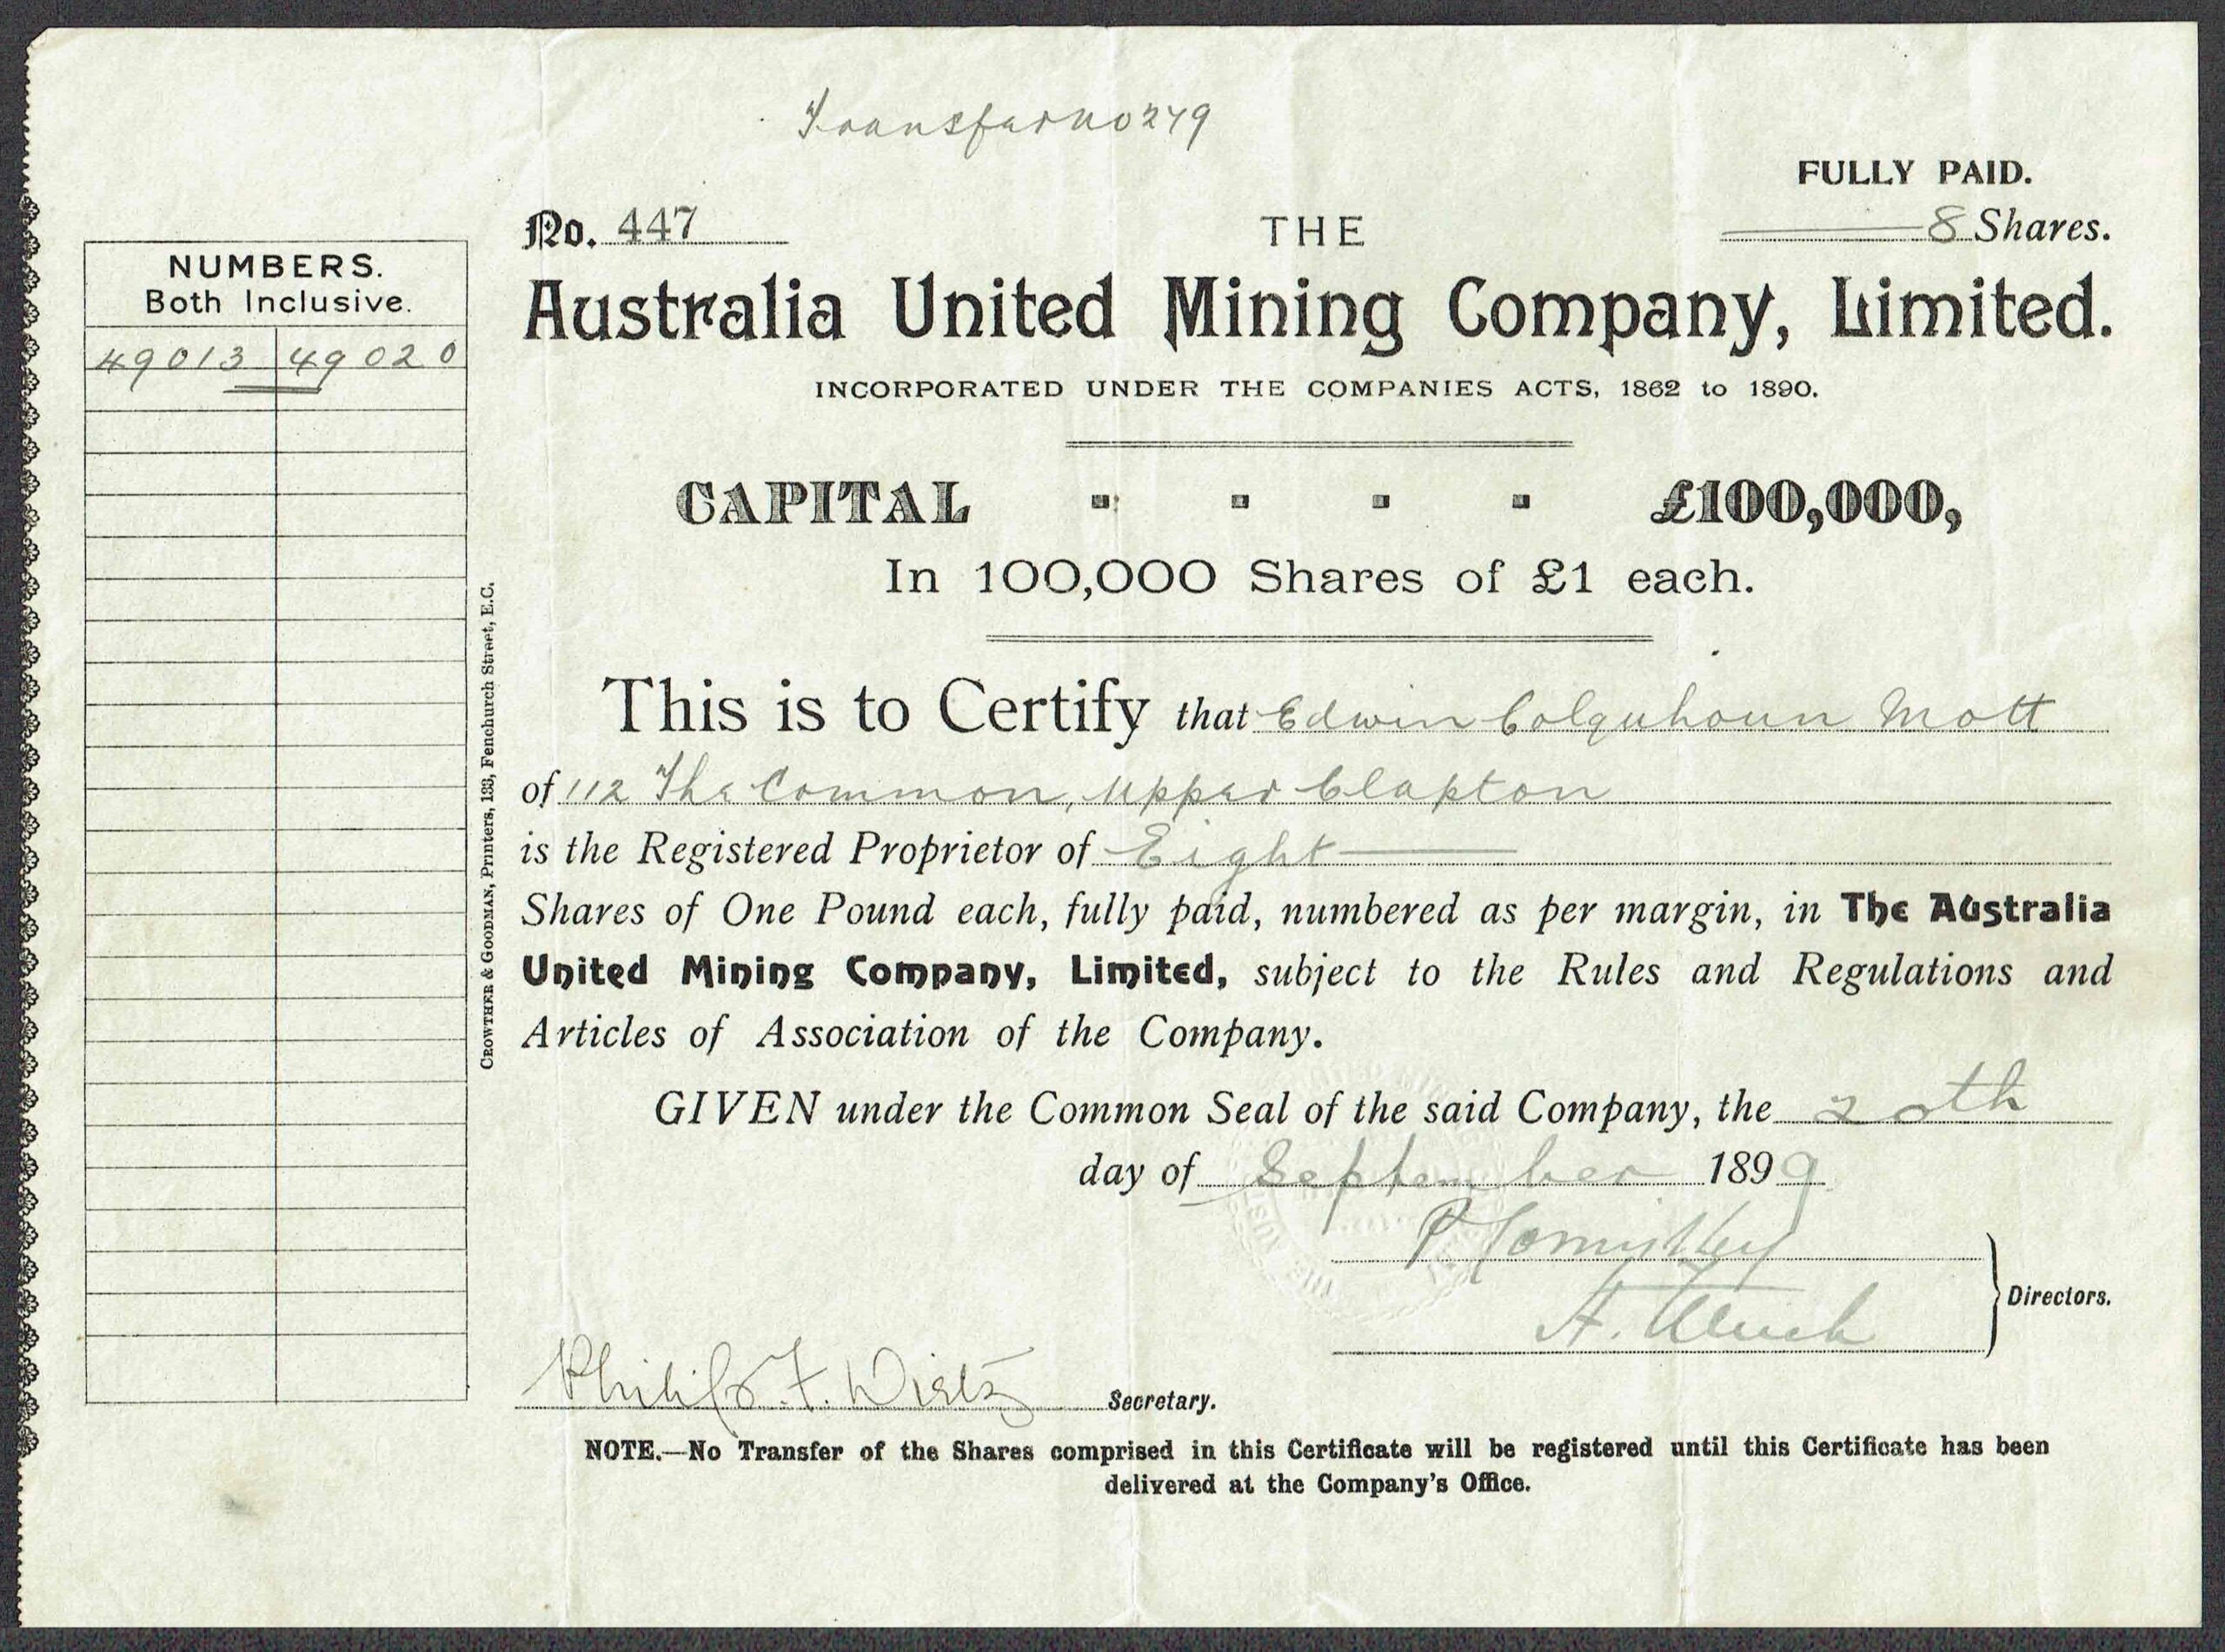 Transfer no 279
FULLY PAID.
No. 447
THE
8 Shares.
Australia United Mining Company, Limited.
INCORPORATED UNDER THE COMPANIES ACTS, 1862 to 1890.
CAPITAL - - - - £100,000,
In 100,000 Shares of £1 each.
NUMBERS.
Both Inclusive.
49013 49020
CROWTHER & GOODMAN, Printers, 133, Fenchurch Street, E.C.
This is to Certify that Edwin Colquhoun Mott
of 112 The Common, Upper Clapton
is the Registered Proprietor of Eight
Shares of One Pound each, fully paid, numbered as per margin, in The Australia
United Mining Company, Limited, subject to the Rules and Regulations and
Articles of Association of the Company.
GIVEN under the Common Seal of the said Company, the 20th
day of September 1899
Directors.
Philip F. Wirtz Secretary.
NOTE.—No Transfer of the Shares comprised in this Certificate will be registered until this Certificate has been
delivered at the Company's Office.